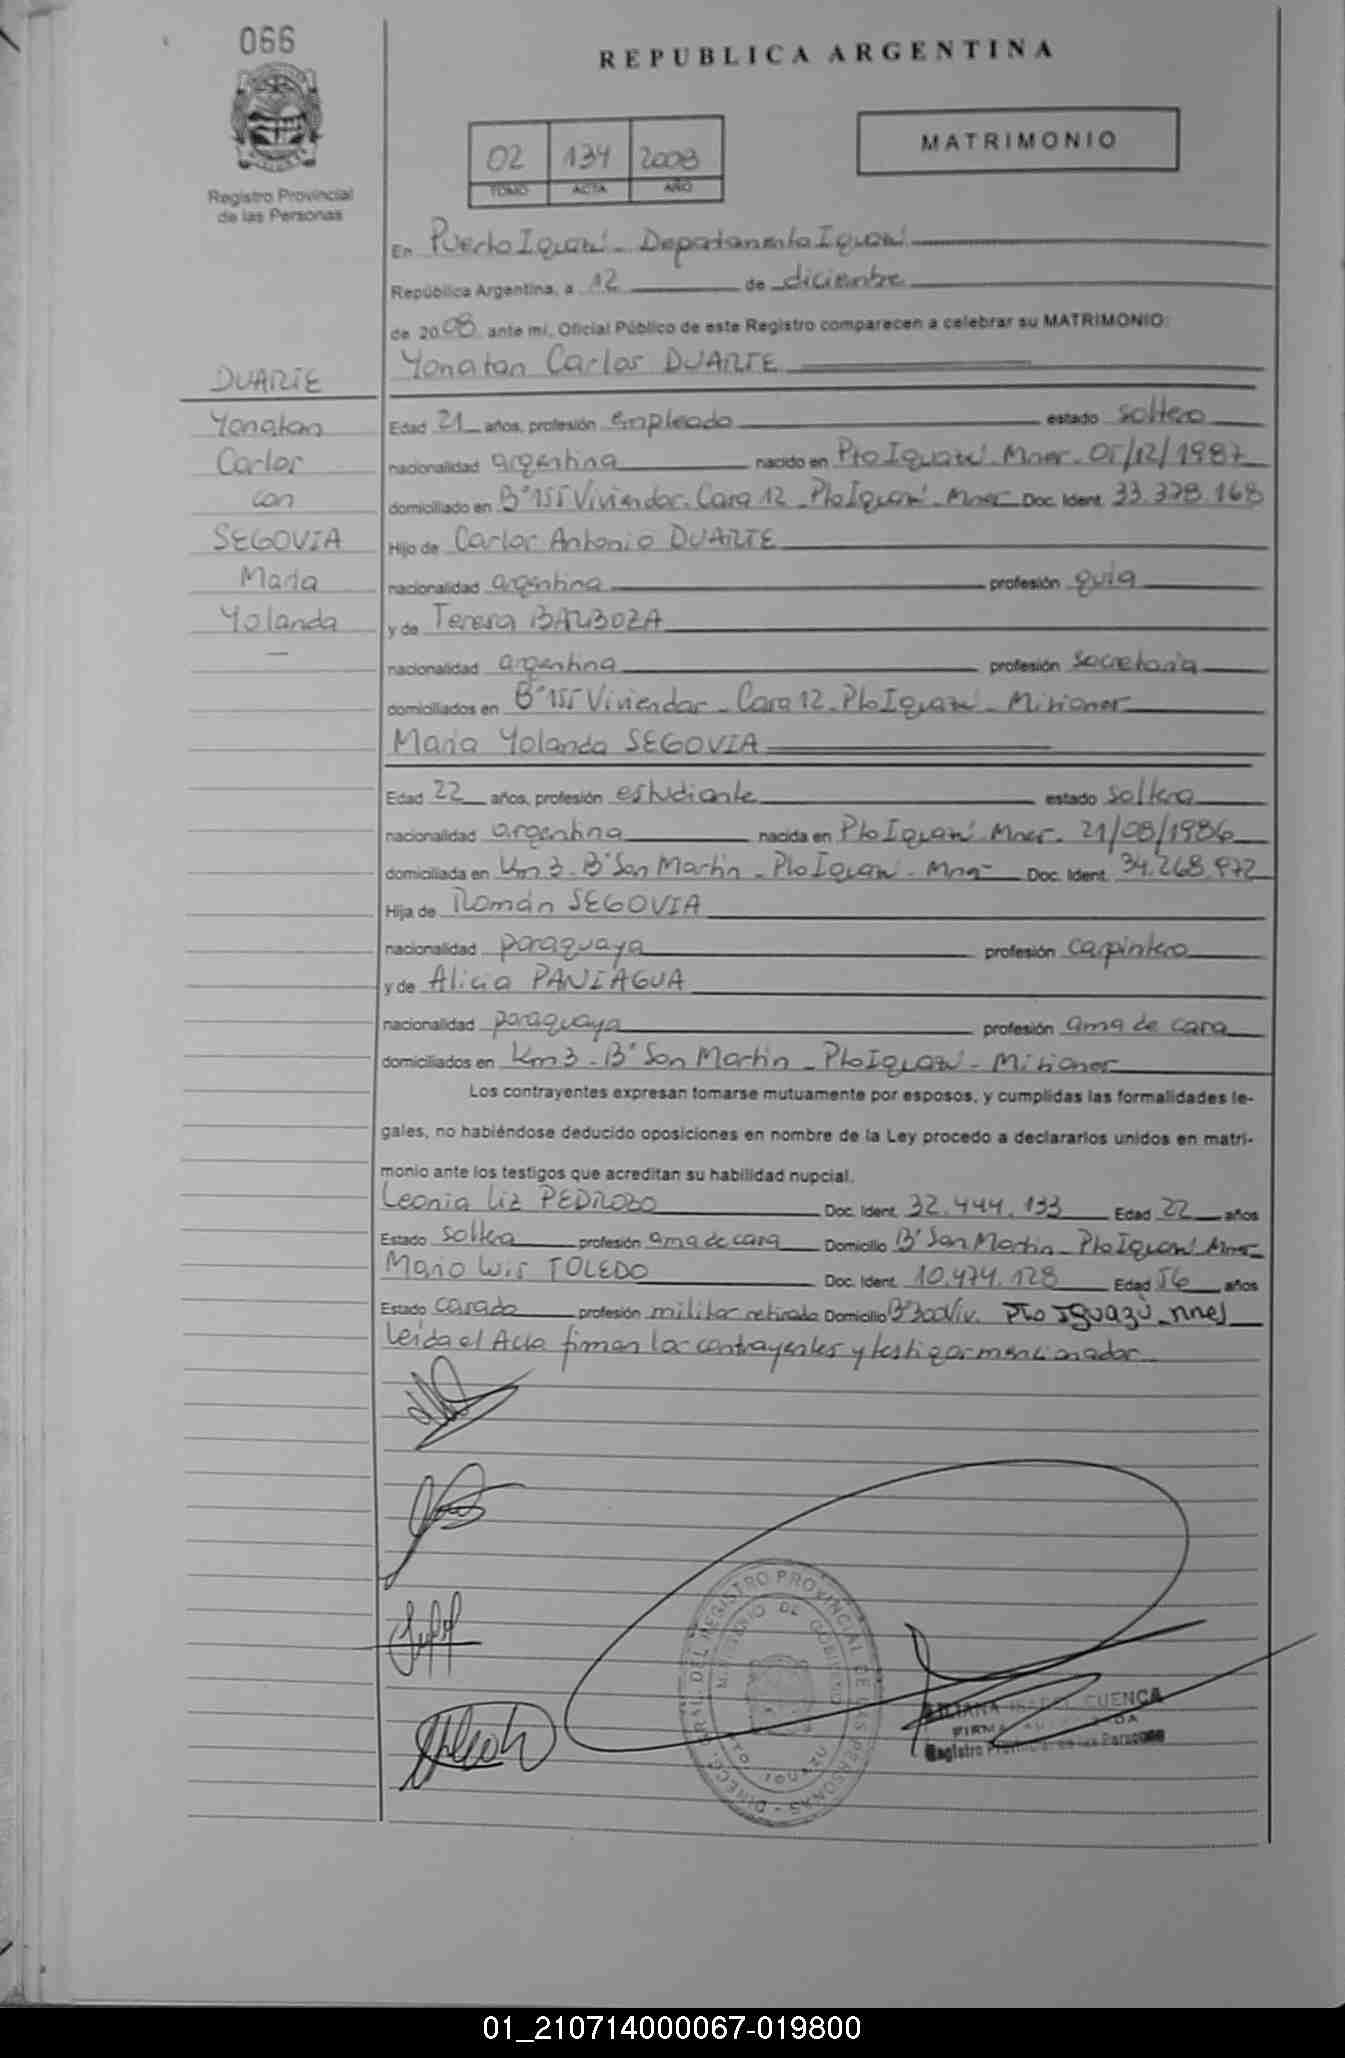 066
REPUBLICA ARGENTINA
02 134 2008
TOMO ACTA AÑO
MATRIMONIO
Registro Provincial
de las Personas
En Puerto Iguazú - Departamento Iguazú
República Argentina, a 12 de diciembre
de 2008 ante mi, Oficial Público de este Registro comparecen a celebrar su MATRIMONIO:
Yonatan Carlos DUARTE
DUARTE
Yonatan
Carlos
con
SEGOVIA
Maria
Yolanda
Edad 21 años, profesión empleado estado soltero
nacionalidad argentina nacido en Pto Iguazú Mnes. 05/12/1987
domiciliado en B° 155 Viviendas. Casa 12 - Pto Iguazú - Mnes Doc. Ident. 33.378.168
Hijo de Carlos Antonio DUARTE
nacionalidad argentina profesión guia
y de Teresa BARBOZA
nacionalidad argentina profesión secretaria
domiciliados en B° 155 Viviendas - Casa 12 - Pto Iguazú - Misiones
Maria Yolanda SEGOVIA
Edad 22 años, profesión estudiante estado soltera
nacionalidad argentina nacida en Pto Iguazú Mnes. 21/08/1986
domiciliada en Km 3 - B° San Martin - Pto Iguazú - Mnes Doc. Ident. 34.268.972
Hija de Román SEGOVIA
nacionalidad paraguaya profesión carpintero
y de Alicia PANIAGUA
nacionalidad paraguaya profesión ama de casa
domiciliados en Km 3 - B° San Martin - Pto Iguazú - Misiones
Los contrayentes expresan tomarse mutuamente por esposos, y cumplidas las formalidades le-
gales, no habiéndose deducido oposiciones en nombre de la Ley procedo a declararlos unidos en matri-
monio ante los testigos que acreditan su habilidad nupcial.
Leonia Liz PEDROZO Doc. Ident. 32.444.133 Edad 22 años
Estado soltera profesión ama de casa Domicilio B° San Martin - Pto Iguazú Mnes
Mario Luis TOLEDO Doc. Ident. 10.474.128 Edad 56 años
Estado casado profesión militar retirado Domicilio B° 300 Viv. Pto Iguazú - Mnes
Leida el Acta firman los contrayentes y testigos mencionados
DIRECC. GRAL. DEL REGISTRO PROVINCIAL DE LAS PERSONAS
MINISTERIO DE GOBIERNO
PTO. IGUAZU
ISABEL CUENCA
Registro Provincial de las Personas
01_210714000067-019800